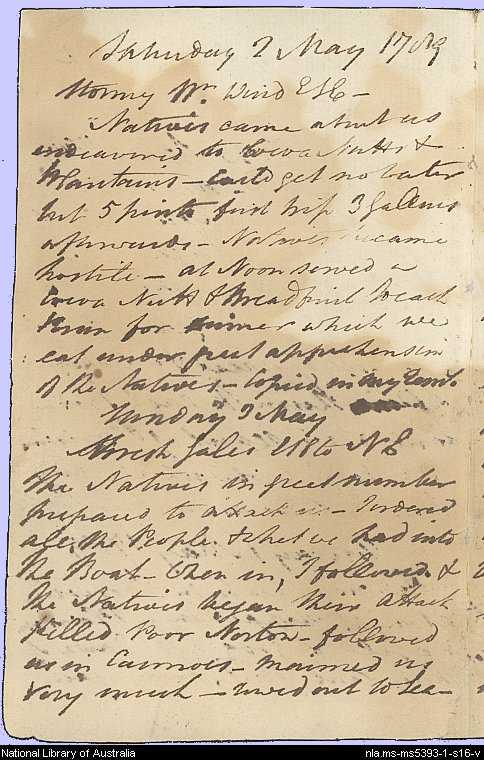 Saturday 2 May 1789
Stormy Wr. Wind ESE –
Natives came about us
endeavored to Cocoa Nutts &
Plantains – Could get no water
but 5 pints first trip 3 Gallons
afterwards – Natives became
hostile – at Noon served a
Cocoa Nutt & Breadfruit to each
Man for dinner which we
eat under great apprehension
of the Natives – Copied in my
Sunday 3 May
Fresh Gales ESE to NE
The Natives in great number
prepared to attack us – I ordered
all the People & what we had into
the Boat – When in, I followed &
the Natives began their attack
Killed Poor Norton – followed
us in Cannoes – maimed us
very much – rowed out to Sea –
National Library of Australia
nla.ms-ms5393-1-s16-v